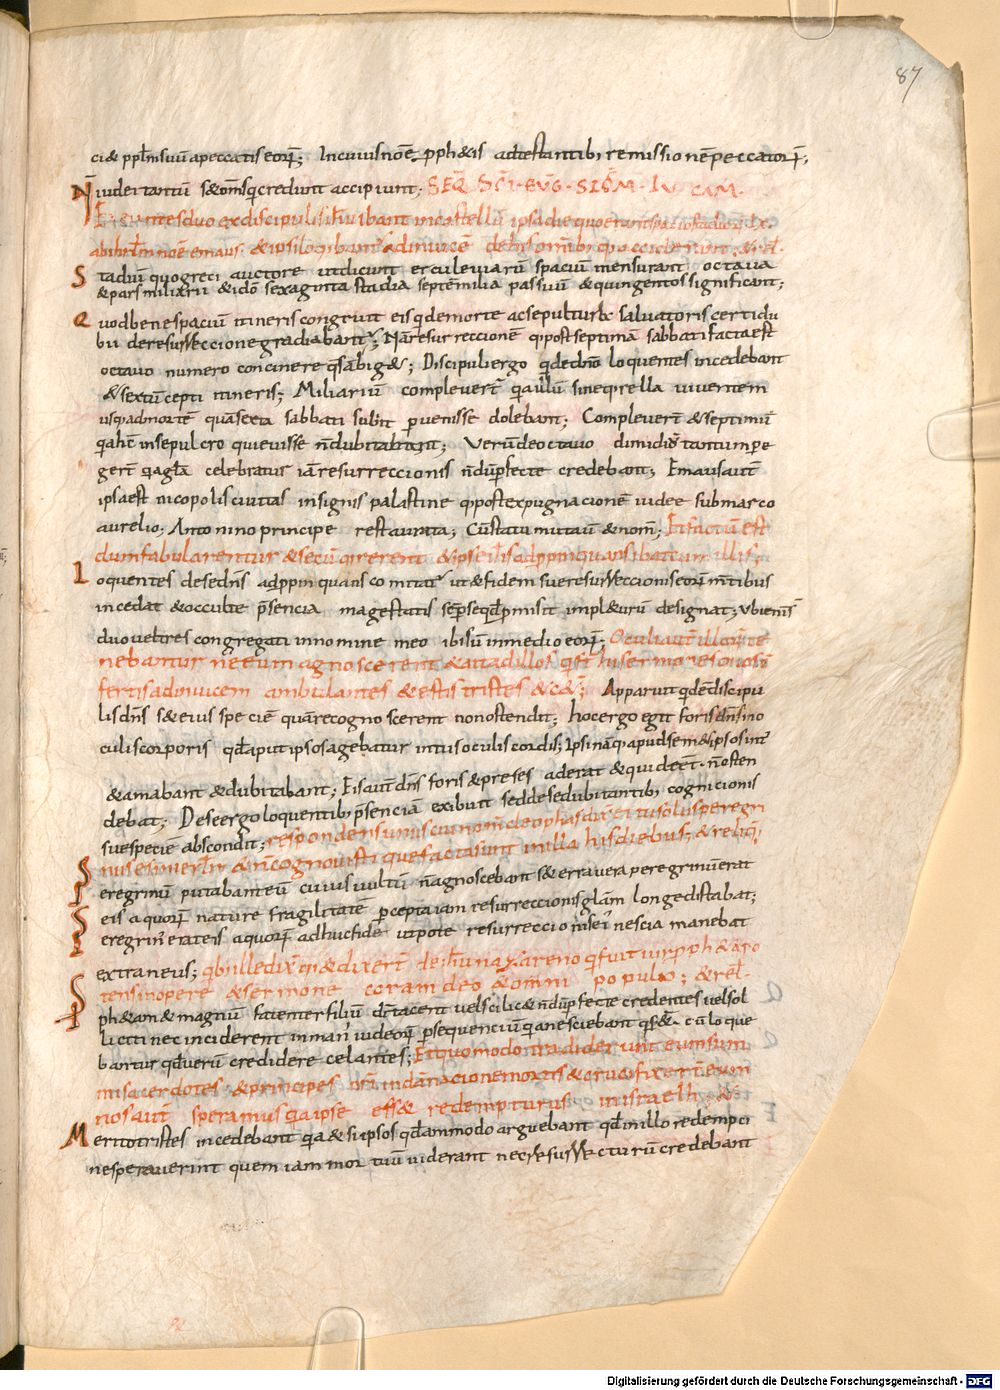 87
ci & ppłm suū apeccatis eorꝫ; In cuius noē ꝓph&is adtestantibꝫ remissionē peccatorꝫ;
Ñ iudei tantū s& om̄s q̇ credunt accipiunt; SEQ̄ SC̄I EUḠ SIGM̄ LUCAM
Exeuntes duo ex discipulis ih̄u ibant in castellū ipsa die quo erant spatio stadiorū Lx
ab ihrłm noē emaus & ipsi loq̇bant adinuicē de his om̄ibꝫ que acciderunt & rł
S tadiū quo greci auctore ut dicunt ercule uiarū spaciū mensurant octaua
& pars miliarii & idō sexaginta stadia septē milia passuū & quingentos significant;
Q uod bene spaciū itineris congruit eis q̇ de morte ac sepultura saluatoris certi du
bii de resurreccione gradiabantur; Nā resurreccionē q̇ post septimā sabbati facta est
octauo numero concinere q̇s ābig&; Discipuli ergo q̇ de dn̄o loquentes incedebant
& sextū cepti itineris; Miliariū complever̄ q̇a illū sine q̇rella uiuentem
usq; ad mortē quā sexta sabbati subiit ꝑuenisse dolebant; Complever̄ & septimū
q̇a hūc in sepulcro quieuisse n̄ dubitabant; Verū de octauo dimidiū tantum ꝑe
gerт̄ q̇a głā celebratur iā resurreccionis n̄ dū ꝑfecte credebant; Emaus aut̄
ipsa est nicopolis ciuitas insignis palastine q̇ post expugnacionē iudee sub marco
aurelio; Antonino principe restaurata; Cū statu mutauit & nom̄; Et factū est
dum fabularentur & secū q̇rerent & ipse ih̄s adppinquans ibat cum illis;
L oquentes de se dn̄s adppinquans comitatur ut & fidem sue resurreccionis eorū m̄tibus
incedat & occulte p̄sencia magestatis sēp se q̇d ꝓmisit impl&urū designat; Ubi enim s̄
duo uel tres congregati in nomine meo ibi sū in medio eorꝫ; Oculi aut̄ illorū te
nebantur ne eum agnoscerent & ait ad illos q̇ s̄t hi sermones quos con
fertis adinuicem ambulantes & estis tristes & c&; Apparuit q̇dē discipu
lis dn̄s s& eius speciē quā recognoscerent non ostendit; hoc ergo egit foris dn̄s in o
culis corporis q̇d aput ipsos agebatur intus oculis cordis; Ipsi nāq; apud sem& ipsos int̄
& amabant & dubitabant; Eis aut̄ dn̄s foris & preses aderat & qui d& n̄ osten
debat; De se ergo loquentibꝫ p̄senciā exibuit sed de se dubitantibꝫ cognicionis
sue speciē abscondit; respondens unus cui nom̄ cleophas dix̄ ei tu solus peregri
nus es in ierłm & n̄ cognouisti que facta sunt in illa his diebus; & reliq̄;
P eregrinū putabant eū cuius uultū n̄ agnoscebant s& er uera peregrinꝰ erat
eis a quorꝫ nature fragilitatē ꝑcepta iam resurreccionis głām longe distabat;
P eregrin̄ erat eis a quorꝫ adhuc fide utpote resurreccionis ei nescia manebat
extraneus; q̇bꝫ ille dix̄ que & dixer̄ de ih̄u nazareno q̇ fuit uir ꝓph&a po
tens in opere & sermone coram deo & omni populo; & reł
P ph&am & magnū fatentur filiū dī tacent uel scilic& n̄dū ꝑfecte credentes uel sol
licti nec inciderent in man̄ iudeorꝫ ꝑsequenciū q̇a nesciebant q̇s ess& cū lo que
bantur q̇d uerū credidere celantes; Et quomodo tradiderunt eum sum
mi sacerdotes & principes nr̄i in dānacionē mortis & crucifixer̄t eum
nos aut̄ speramus q̇a ipse ess& redempturus israelh; &
M erito tristes incedebant q̇a & si ipsos q̇dammodo arguebant q̇d in illo redempci
nē speraverint quem iam mortuū uiderant nec resurrecturū credebant
Digitalisierung gefördert durch die Deutsche Forschungsgemeinschaft - DFG